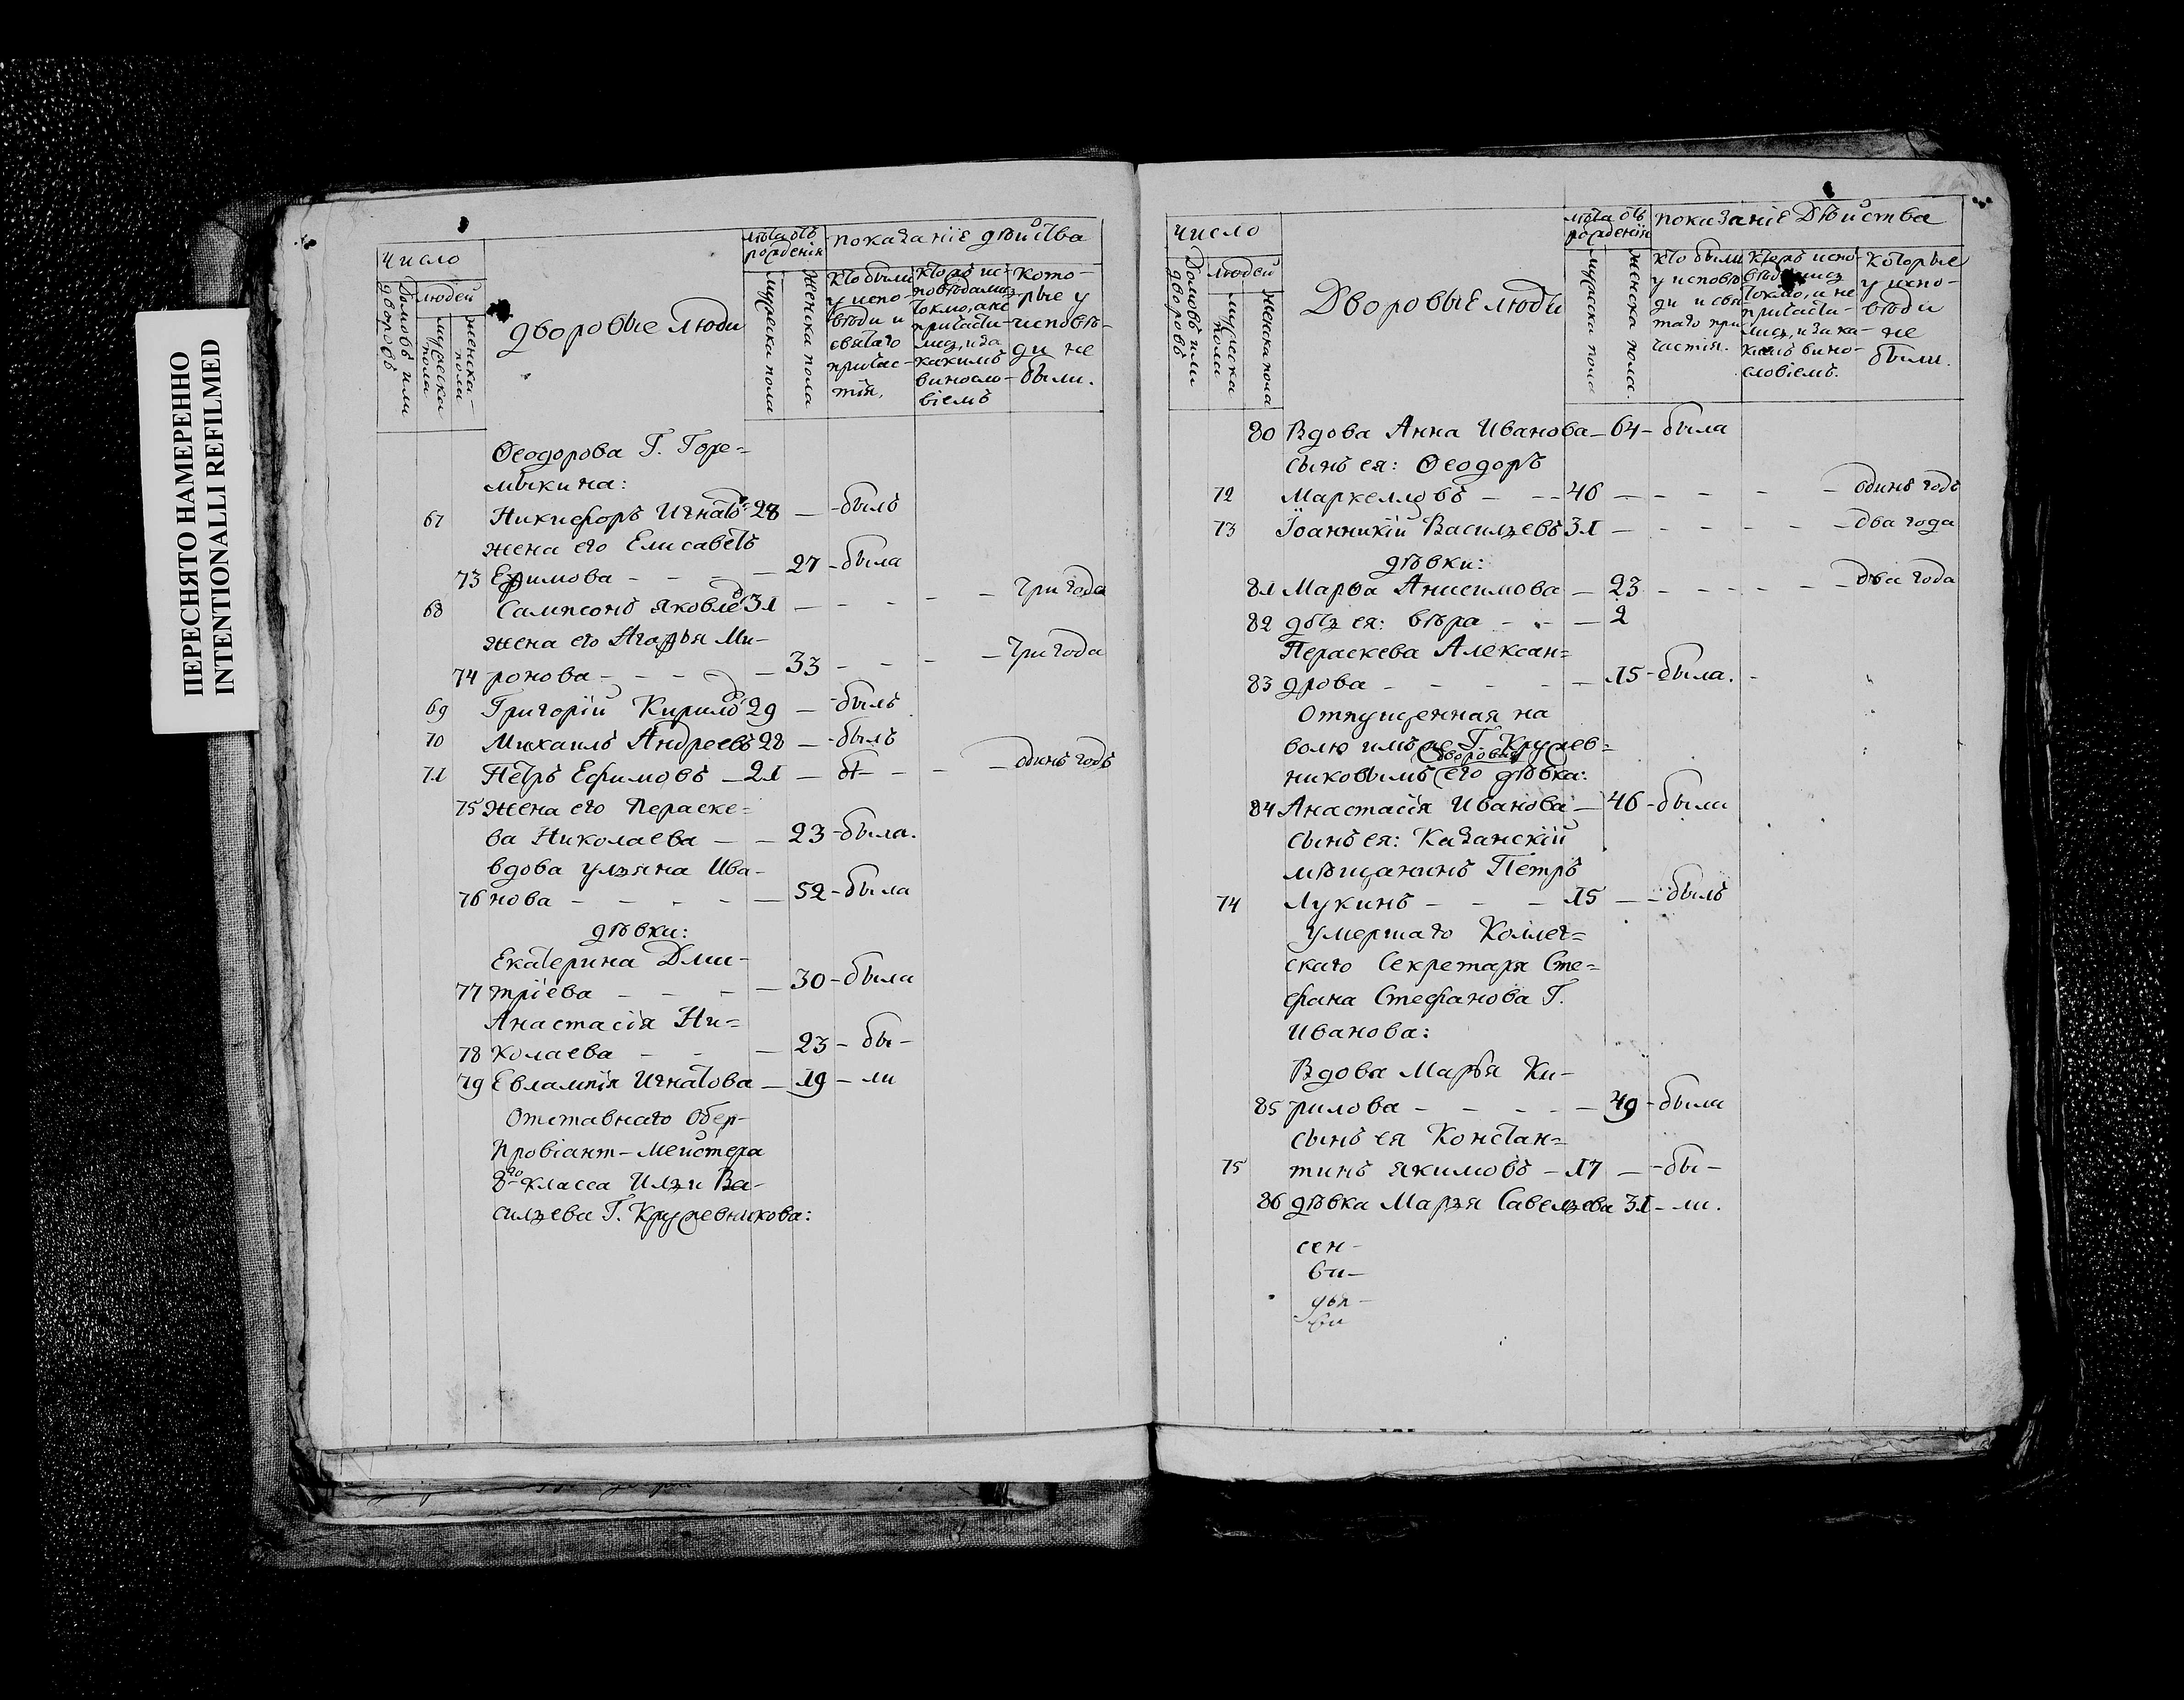 ПЕРЕСНЯТО НАМЕРЕННО
INTENTIONALLI REFILMED
число
Домовъ или дворовъ
людей
мужеска пола
женска пола
дворовые люди
лѣта отъ рожденія
мужеска пола
женска пола
показаніе дѣйства
кто были
у испо-
вѣди и
святаго
причас-
тія,
кторъ ис-
повѣдались
токмо, а не
причасти-
лись, и за
какимъ
винослo-
віемъ
кото-
рые у
исповѣ-
ди не
были.
Ѳеодорова Г. Горе=
мыкина:
67 Никифоръ Игнатъ 28 — - былъ
жена его Елисаветъ
73 Ефимова - - — 27 - была
68 Сампсонъ Яковлев 31 — - - - - три года
жена его Агафья Ми-
74 ронова - - - - — 33 - - - - три года
69 Григорій Кирилов 29 — - былъ
70 Михаилъ Андреевъ 28 — - былъ
71 Петръ Ефимовъ — 21 — бы - - - один годъ
75 жена его Пераске-
ва Николаева — — 23 - была.
вдова Ульяна Ива-
76 нова - - - - — 52 - была
дѣвки:
Екатерина Дми-
77 тріева - - - — 30 - была
Анастасія Ни=
78 колаева - - — 23 - бы -
79 Евлампія Игнатова — 19 - ли
Отставнаго Обер-
Провіант-мейстера
8го класса Ильи Ва-
сильева Г. Кружевникова:
число
Домовъ или дворовъ
людей
мужеска пола
женска пола
Дворовые люди
лѣта отъ рожденія
мужеска пола
женска пола.
показаніе Дѣйства
кто были
у исповѣ
ди и свя
таго при
частія.
кторъ испо-
вѣдались
токмо, и не
причасти-
лись, и за ка-
кимъ вино-
словіемъ.
которые
у испо-
вѣди
не
были.
80 Вдова Анна Иванова — 64 - была
сынъ ея: Ѳеодоръ
72 Маркелловъ — - - 46 — - - - - одинъ годъ
73 Іоанникій Васильевъ 31 — - - - - два года
дѣвки:
81 Марѳа Анисимова — 23 - - - - - два года
82 дочь ея: вѣра - - — 2
Пераскева Алексан=
83 дрова - - - - — 15 - была.
Отпущенная на
волю имъ же Г. Кружев=
дворовая
никовымъ его дѣвка:
84 Анастасія Иванова — 46 - была
сынъ ея: Казанскій
мѣщанинъ Петръ
74 Лукинъ - - - 15 — - былъ
Умершаго Коллеж=
скаго Секретаря Сте=
фана Стефанова Г.
Иванова:
Вдова Марья Ки-
85 рилова - - - - — 49 - была
сынъ ея Констан=
75 тинъ Якимовъ - 17 — - бы -
86 дѣвка Марья Савельева 31 - ли.